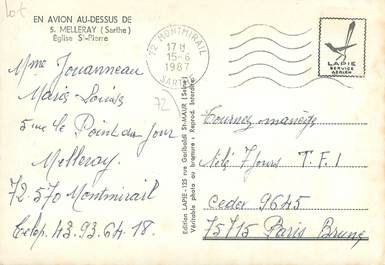 Lot
EN AVION AU-DESSUS DE
5. MELLERAY (Sarthe)
Église St-Pierre
72 MONTMIRAIL
17 H
15-6
1987
SARTHE
LAPIE
SERVICE
AERIEN
72
Mme Jouanneau
Marie Louise
5 rue le Point du Jour
Melleray.
72.570 Montmirail
Telep. 43.93.64.18.
Edition LAPIE-125 rue Garibaldi St-MAUR (Seine)
Véritable photo au bromure - Reprod. Interdite
Tournez manèges
Télé 7 Jours T.F.1
Cedex 9645
75715 Paris Brune